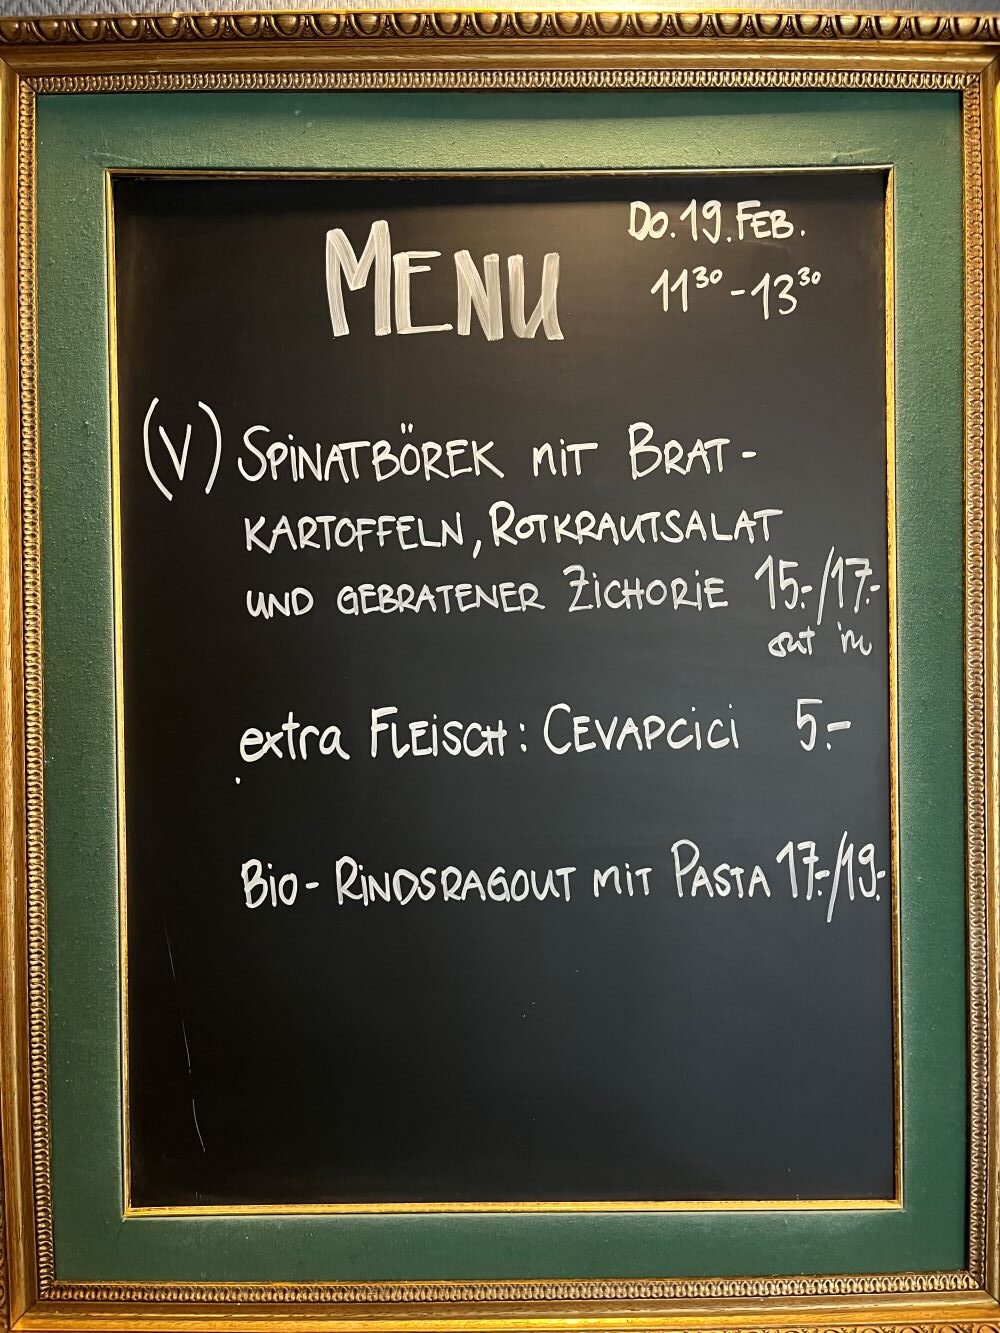 MENU
DO. 19. FEB.
11³⁰ - 13³⁰
(V) SPINATBÖREK MIT BRAT-
KARTOFFELN, ROTKRAUTSALAT
UND GEBRATENER ZICHORIE 15.-/17.-
out in
extra FLEISCH: CEVAPCICI 5.-
BIO-RINDSRAGOUT MIT PASTA 17.-/19.-